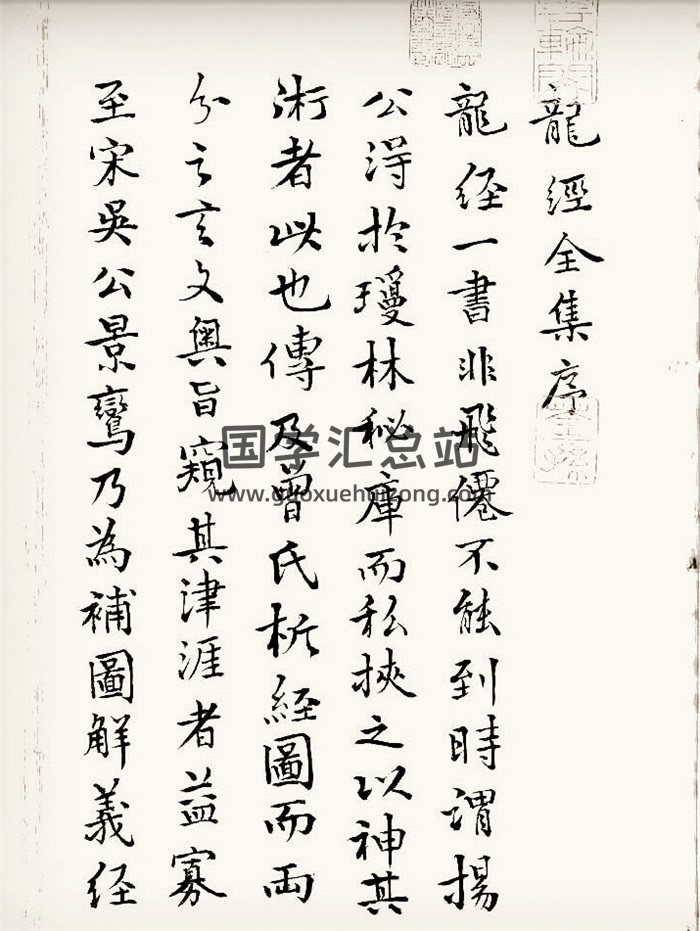 龍經全集序
龍经一書非飛僊不能到時謂揚
公淂扵瓊林秘庫而私挾之以神其
術者此也傳及曾氏析經圖而両
分之玄文奥旨窺其津涯者益寡
至宋吳公景鸞乃為補圖解義经
国学汇总站
www.guoxuehuizong.com